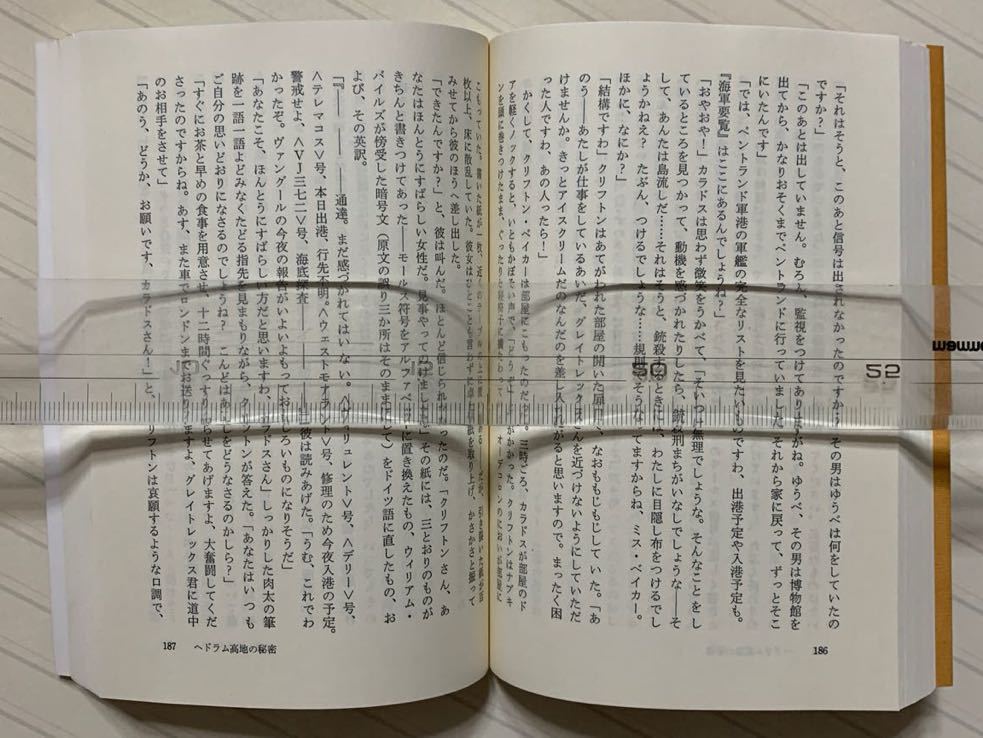 「それはそうと、このあと信号は出されなかったのですか？その男はゆうべは何をしていたの
ですか？」
「このあとは出していません。むろん、監視をつけてありますがね。ゆうべ、その男は博物館を
出てから、かなりおそくまでペントランドに行っていました それから家に戻って、ずっとそこ
にいたんです」
「では、ペントランド軍港の軍艦の完全なリストを見たいものですわ、出港予定や入港予定も。
『海軍要覧』はここにあるんでしょうね？」
「おやおや！」カラドスは思わず微笑をうかべて、「そいつは無理でしょうな。そんなことをし
ているところを見つかって、動機を感づかれたりしたら、銃殺刑まちがいなしでしょうな――そ
して、あんたは島流しだ……それはそうと、銃殺されるときには、わたしに目隠し布をつけるでし
ょうかねえ？たぶん、つけるでしょうな……規則でそうなってますからね、ミス・ベイカー。
ほかに、なにか？」
「結構ですわ」クリフトンはあてがわれた部屋の開いた扉口で、なおももじもじしていた。「あ
のう――あたしが仕事をしているあいだ、グレイトレックスさんを近づけないようにしていただ
けませんか。きっとアイスクリームだのなんだのを差し入れたがると思いますので。まったく困
った人ですわ、あの人ったら！」
かくして、クリフトン・ベイカーは部屋にこもったのだった。三時ごろ、カラドスが部屋のド
アを軽くノックすると、いともかぼそい声で、「どうぞ」 がかかった。クリフトンはナプキ
ンを頭に巻きつけたまま、ぐったりと 椅子に横たわって オーデコロンのにおいが部屋に
こもっていた。 書いた紙が一枚、近くのテーブルの上に だが、引き裂いた紙が百
枚以上、床に散乱していた。彼女はひとことも言わずに 紙を取り上げ、かさかさと振って
みせてから彼のほうへ差し出した。
「できたんですか？」と、彼は叫んだ。ほとんど信じられなかったのだ。「クリフトンさん、あ
なたはほんとうにすばらしい女性だ。見事やってのけましたね」その紙には、三とおりのものが
きちんと書きつけてあった――モールス符号をアルファベットに置き換えたもの、ウィリアム・
バイルズが傍受した暗号文（原文の誤り三か所はそのままにして）をドイツ語に直したもの、お
よび、その英訳。
『―― ―― ――通達。まだ感づかれてはいない。 リュレント〉号、〈デリー〉号、
〈テレマコス〉号、本日出港、行先不明。〈ウェストモアランド〉号、修理のため今夜入港の予定。
警戒せよ、〈VJ三七二〉号、海底探査―― 』彼は読みあげた。「うむ、これでわ
かったぞ。ヴァングールの今夜の報告がいよいよもっておもしろいものになりそうだ」
「あなたこそ、ほんとうにすばらしい方だと思いますわ、カラドスさん」しっかりした肉太の筆
跡を一語一語よどみなくたどる指先を見まもりながら、クリフトンが答えた。「あなたはいつも
ご自分の思いどおりになさるのでしょうね？こんどはあたしをどうなさるのかしら？」
「すぐにお茶と早めの食事を用意させ、十二時間ぐっすり眠らせてあげますよ、大奮闘してくだ
さったのですからね。あす、また車でロンドンまでお送りしますよ、グレイトレックス君に道中
のお相手をさせて」
「あのう、どうか、お願いです、カラドスさん！」と、クリフトンは哀願するような口調で、
186
187 ヘドラム高地の秘密
50
52